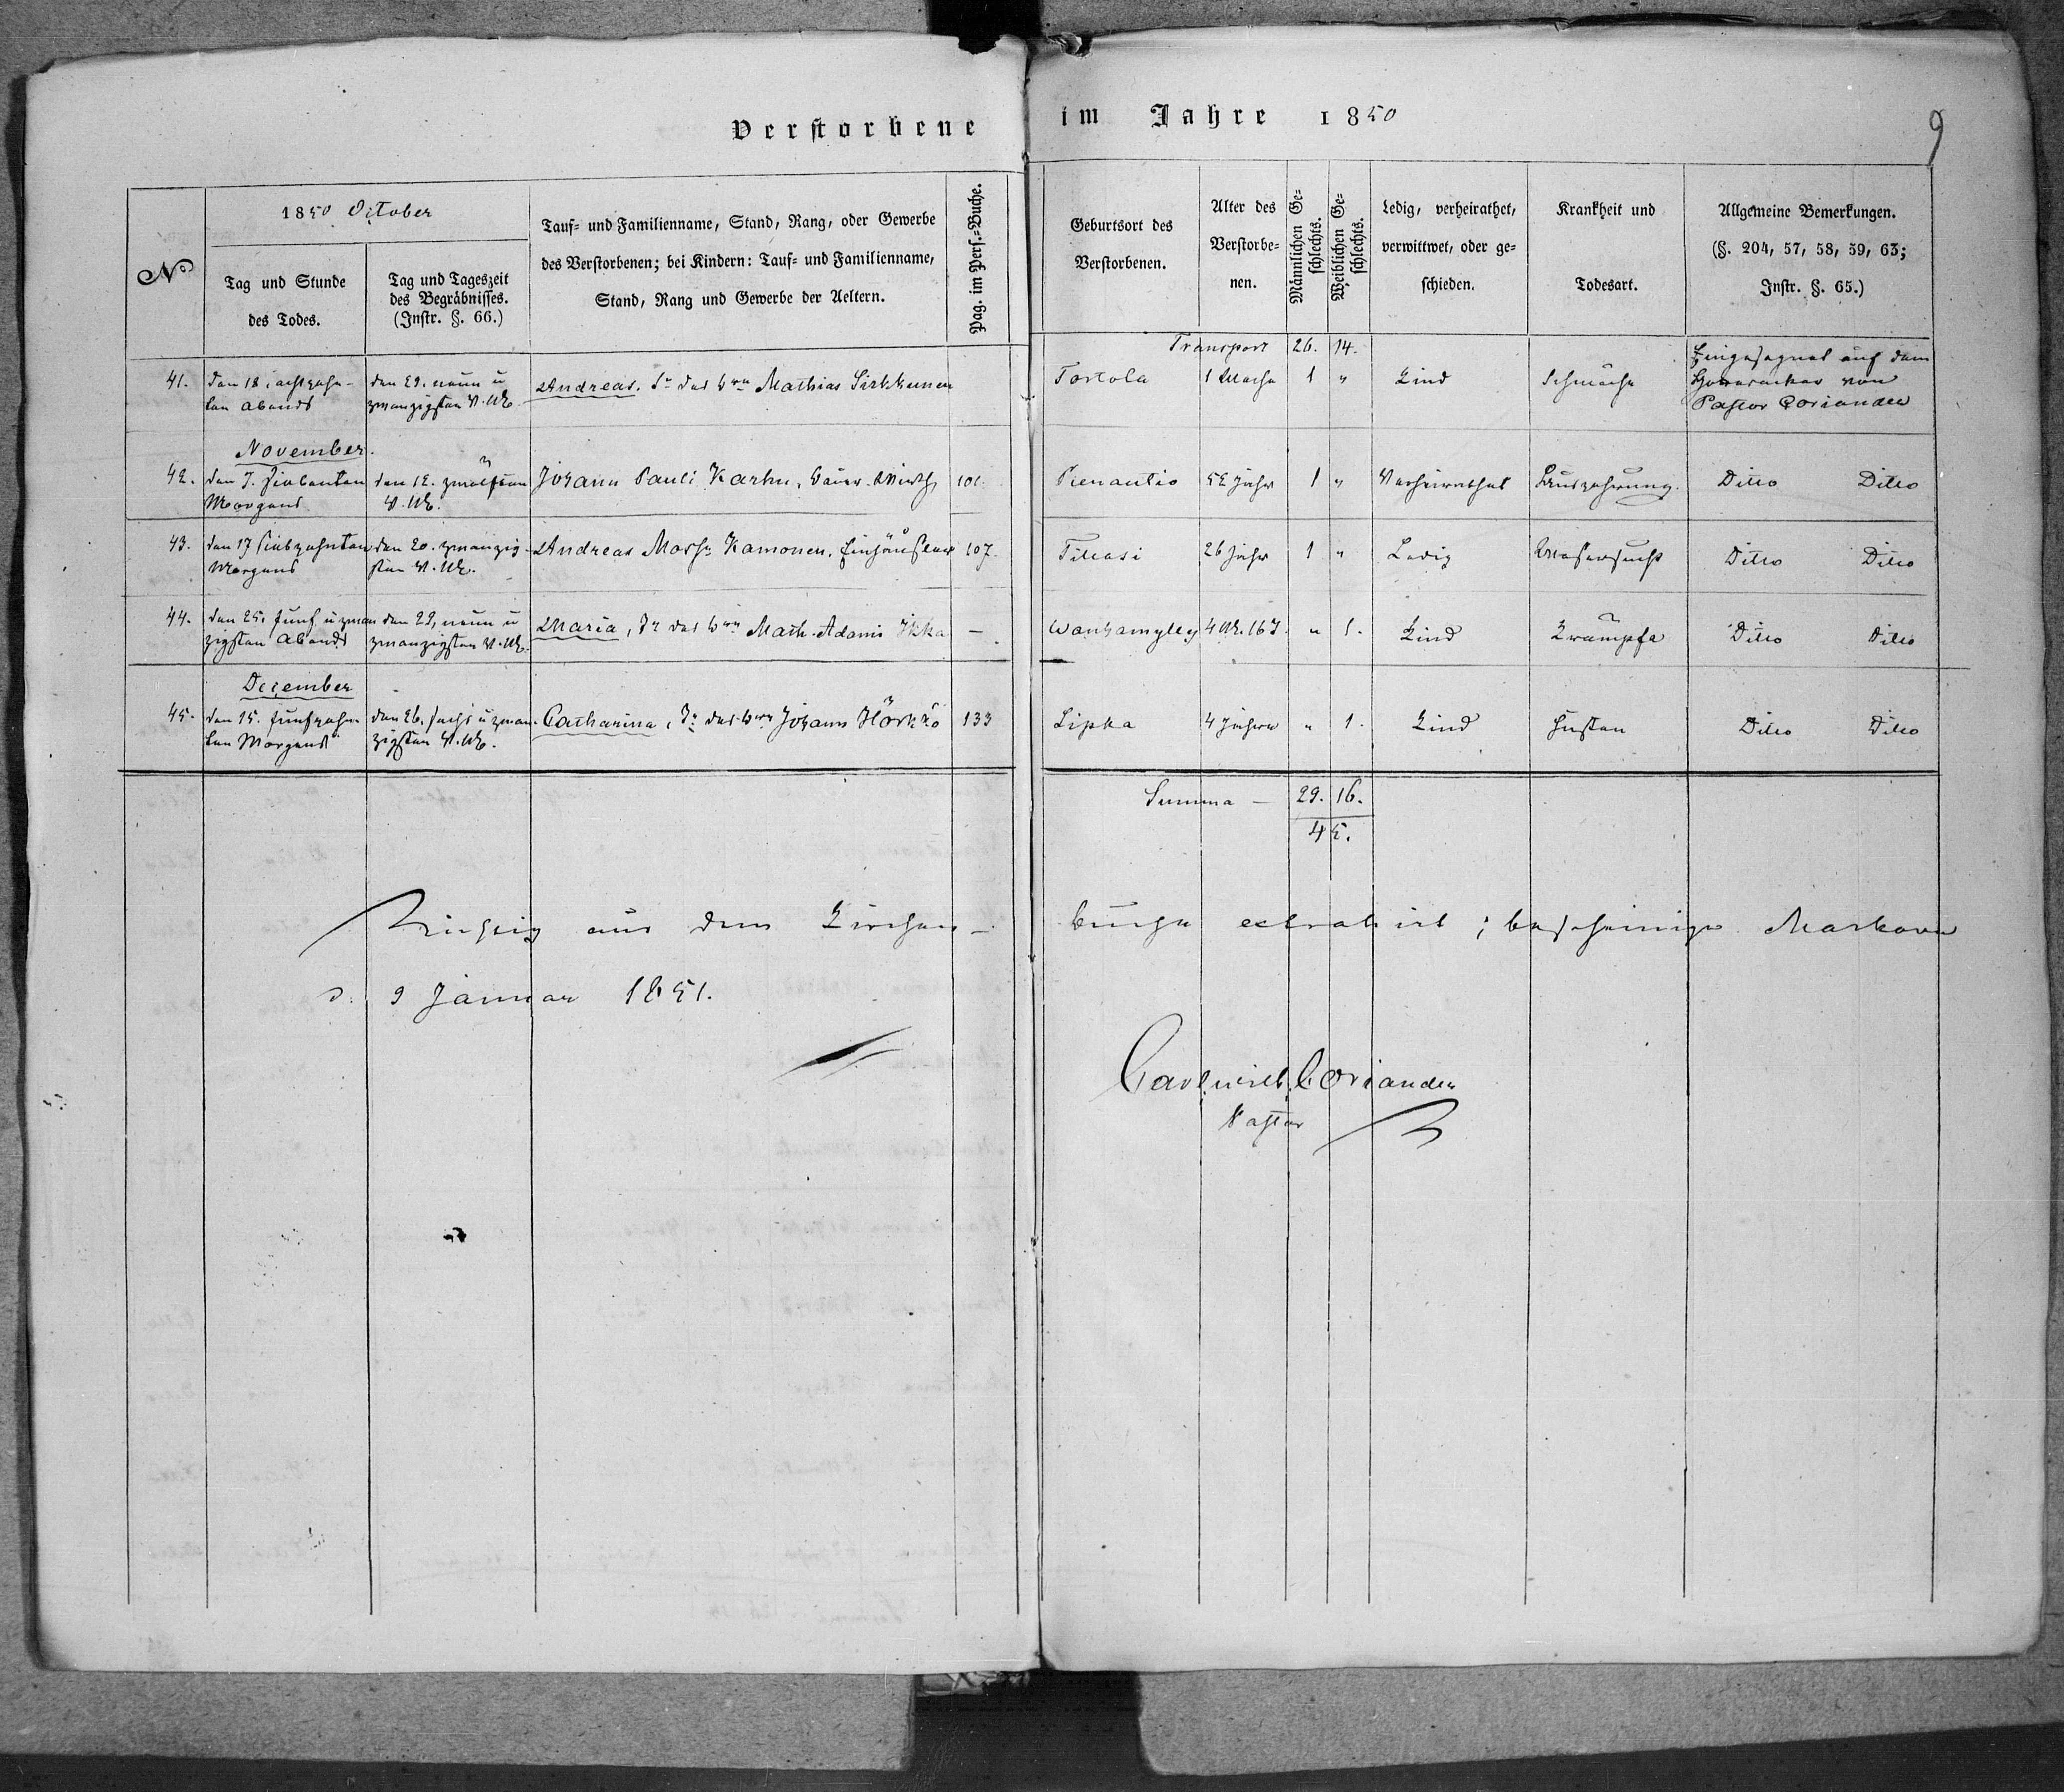 Verstorbene im Jahre 1850
9
№
1850 October
Tag und Stunde
des Todes.
Tag und Tageszeit
des Begräbnisses.
(Instr. §. 66.)
Tauf- und Familienname, Stand, Rang, oder Gewerbe
des Verstorbenen; bei Kindern: Tauf- und Familienname,
Stand, Rang und Gewerbe der Aeltern.
Pag. im Pers.-Buche.
Geburtsort des
Verstorbenen.
Alter des
Verstorbe-
nen.
Männlichen Ge-
schlechts.
Weiblichen Ge-
schlechts.
Ledig, verheirathet,
verwittwet, oder ge-
schieden.
Krankheit und
Todesart.
Allgemeine Bemerkungen.
(§. 204, 57, 58, 59, 63;
Instr. §. 65.)
Transport 26. 14.
41.
den 18. achtzehn-
ten Abends
den 29. neun u
zwanzigsten V. M.
Andreas, S. des Mathias Sirkkunen
Tortola
1 Woche
1 "
Kind
Schwäche
Eingesegnet auf dem
Gottesacker von
Pastor Coriander
November.
42.
den 7. siebenten
Morgens
den 12. zwölften
V. M.
Johann Pauli Karhu, Bauer-Wirth
101.
Pienautio
52 Jahr
1 "
Verheirathet
Auszehrung.
Ditto Ditto
43.
den 17 siebzehnten
Morgens
den 20. zwanzig-
sten V. M.
Andreas Kamonen, Einhäusler
107.
26 Jahr
1 "
Ledig
Wassersucht
Ditto Ditto
44.
den 25. fünf u zwan
zigsten Abends
den 29, neun u
zwanzigsten V. M.
Maria, T. des Math. Adami Ikka
—
Wanhamyley
4 M. 16 T.
" 1.
Kind
Krämpfe
Ditto Ditto
December
45.
den 15. fünfzehn
ten Morgens
den 26. sechs u zwan-
zigsten V. M.
Catharina, T. des Johann Hörkkö
133
Lipka
4 Jahre
" 1.
Kind
Husten
Ditto Ditto
Summa — 29. 16.
45.
Richtig aus dem Kirchen-
buche extrahirt; bescheinige Markowa
d. 9 Januar 1851.
Carl Wilh. Coriander
Pastor